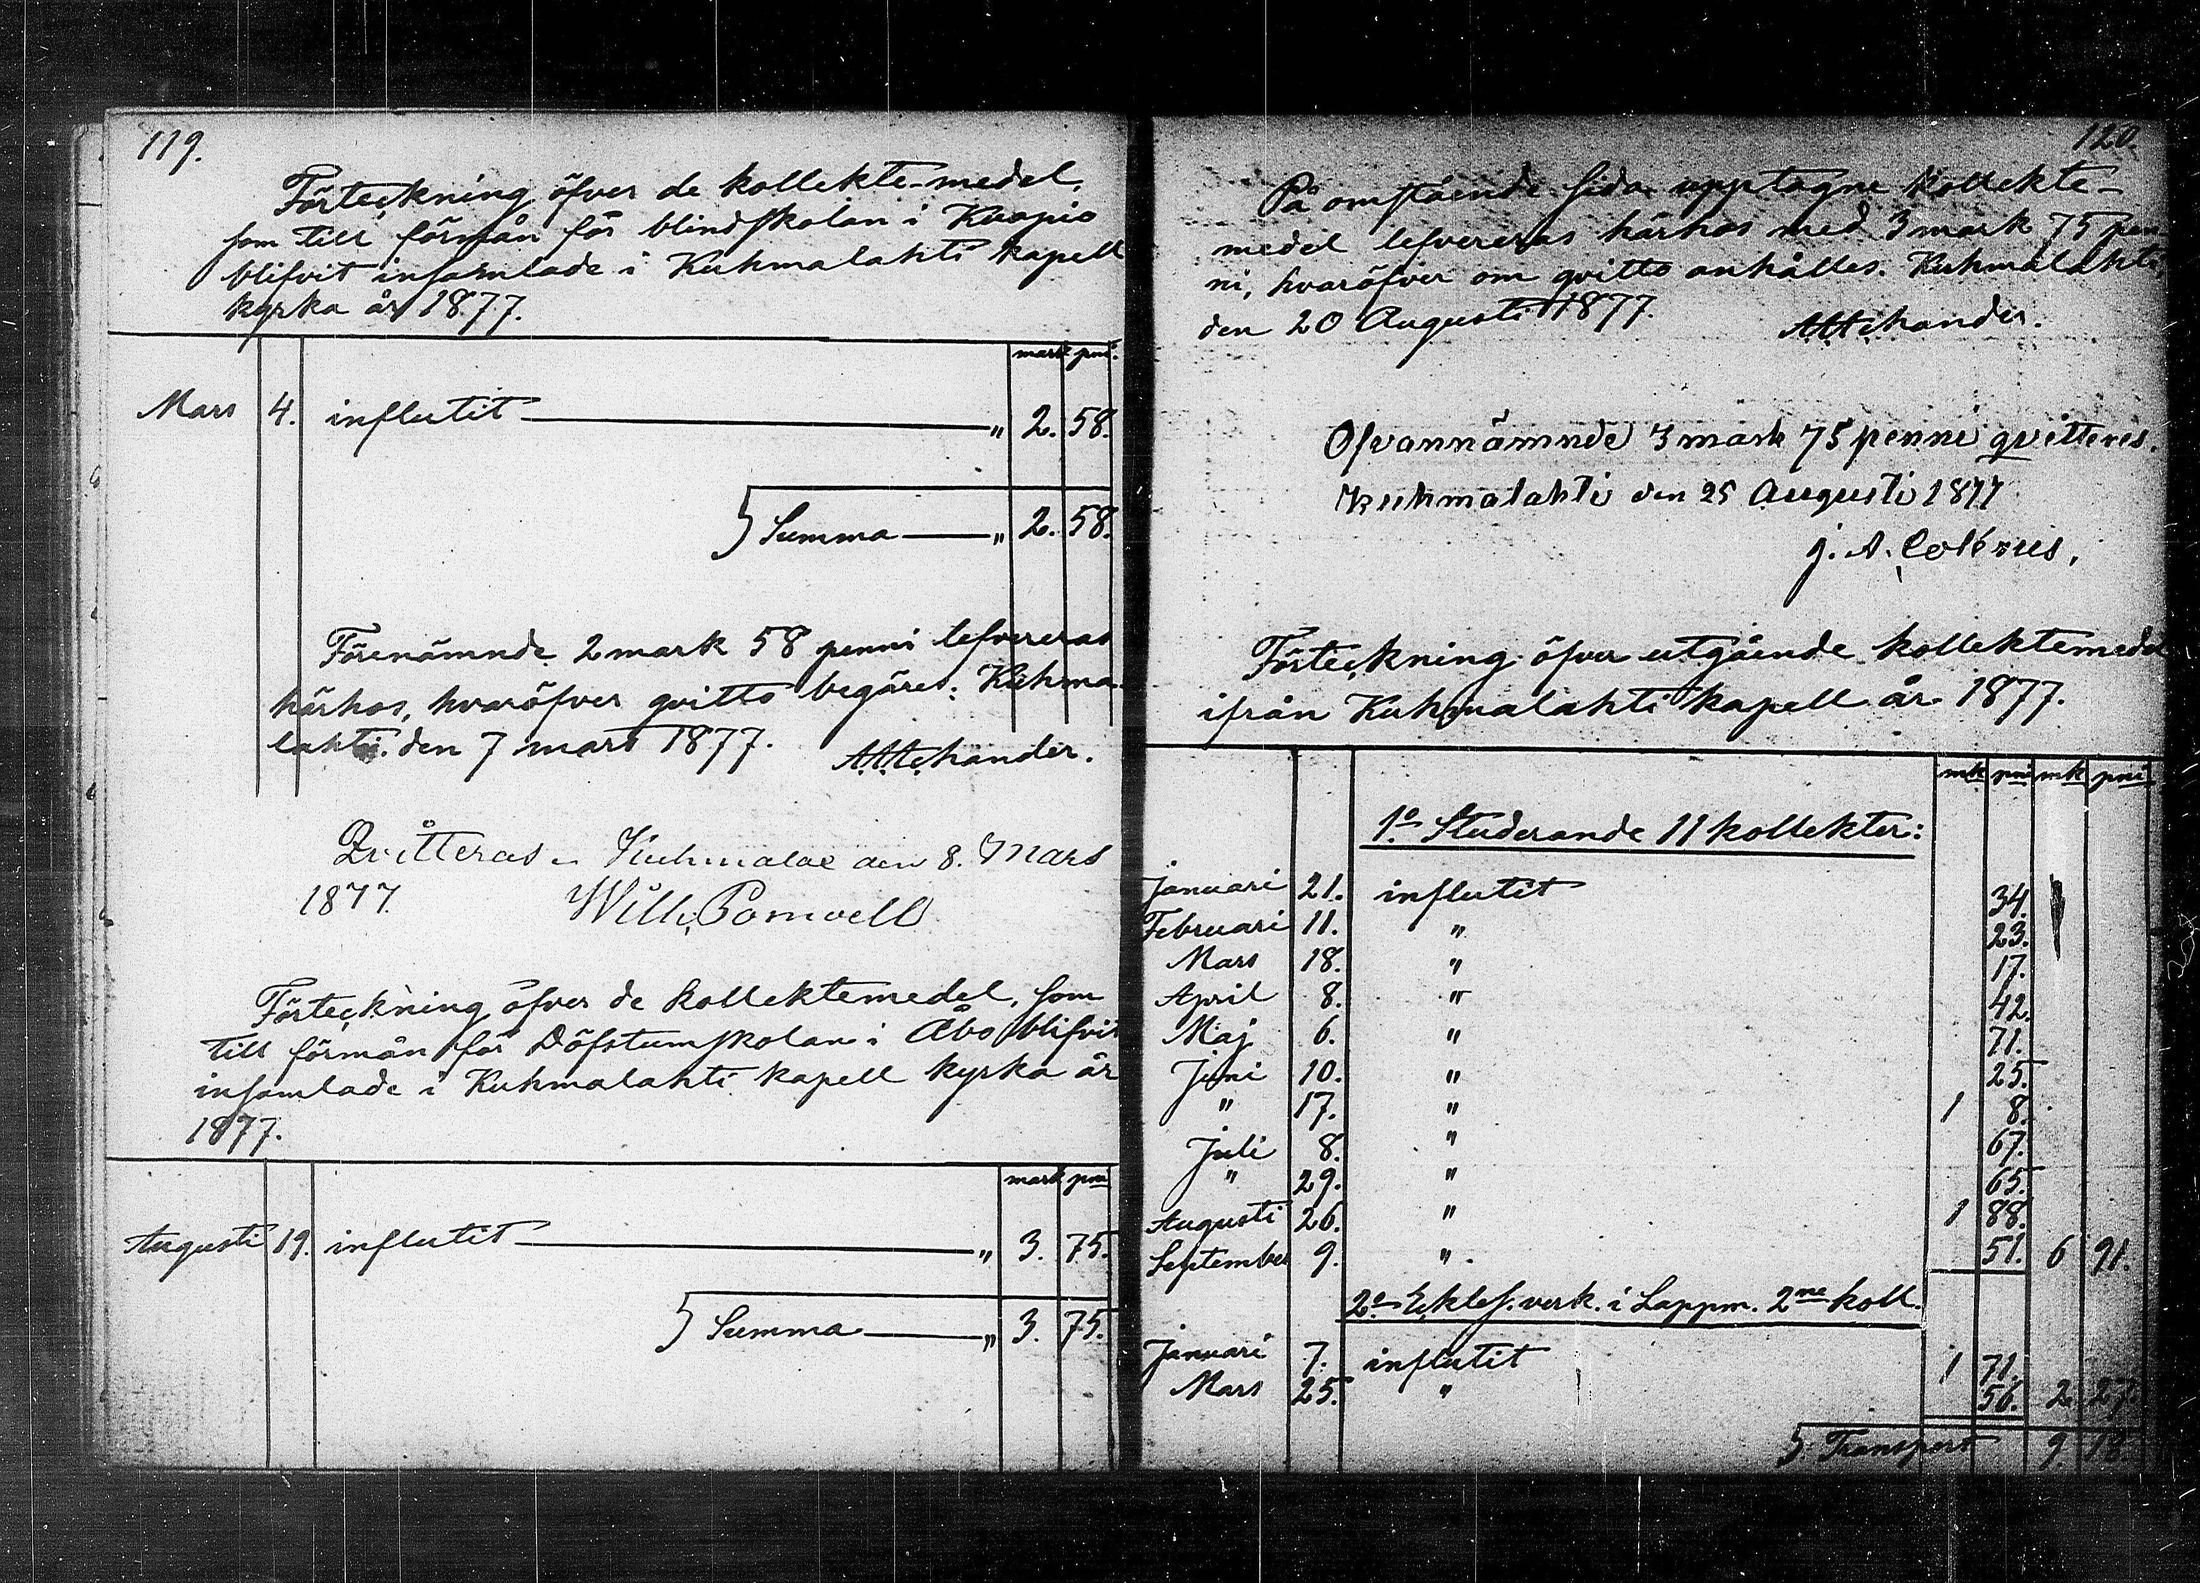 119.
Förteckning öfver de kollekte-medel,
som till förmån för blindskolan i Kuopio
blifvit insamlade i Kuhmalahti kapell
kyrka år 1877.
mark pni.
Mars 4. influtit „ 2. 58.
Summa „ 2. 58.
Förenämnde 2 mark 58 penni lefvereras
härhos, hvaröfver qvitto begäres. Kuhma-
lahti den 7 mars 1877.
Qvitteras Kuhmalax den 8. Mars
1877. Wilh.
Förteckning öfver de kollektemedel, som
till förmån för Döfstumskolan i Åbo blifvit
insamlade i Kuhmalahti kapell kyrka år
1877.
mark pni
Augusti 19. influtit „ 3. 75.
Summa „ 3. 75.
120.
På omstående sida upptagne kollekte-
medel lefvereras härhos med 3 mark 75 pen
ni, hvaröfver om qvitto anhålles. Kuhmalahti,
den 20 Augusti 1877.
Ofvannämnde 3 mark 75 penni qvitteres.
Kuhmalahti den 25 Augusti 1877
J. A.
Förteckning öfver utgående kollektemedel
ifrån Kuhmalahti kapell år 1877.
mk pni mk pni
1o Studerande 11 kollekter:
Januari 21. influtit 34.
Februari 11. „ 23.
Mars 18. „ 17.
April 8. „ 42.
Maj 6. „ 71.
Juni 10. „ 25.
„ 17. „ 1 8.
Juli 8. „ 67.
„ 29. „ 65.
Augusti 26. „ 1 88.
September 9. „ 51. 6 91.
2o Ecкles. verk. i Lappm. 2ne koll.
Januari 7. influtit 1 71.
Mars 25. „ 56. 2. 27.
Transport 9. 18.